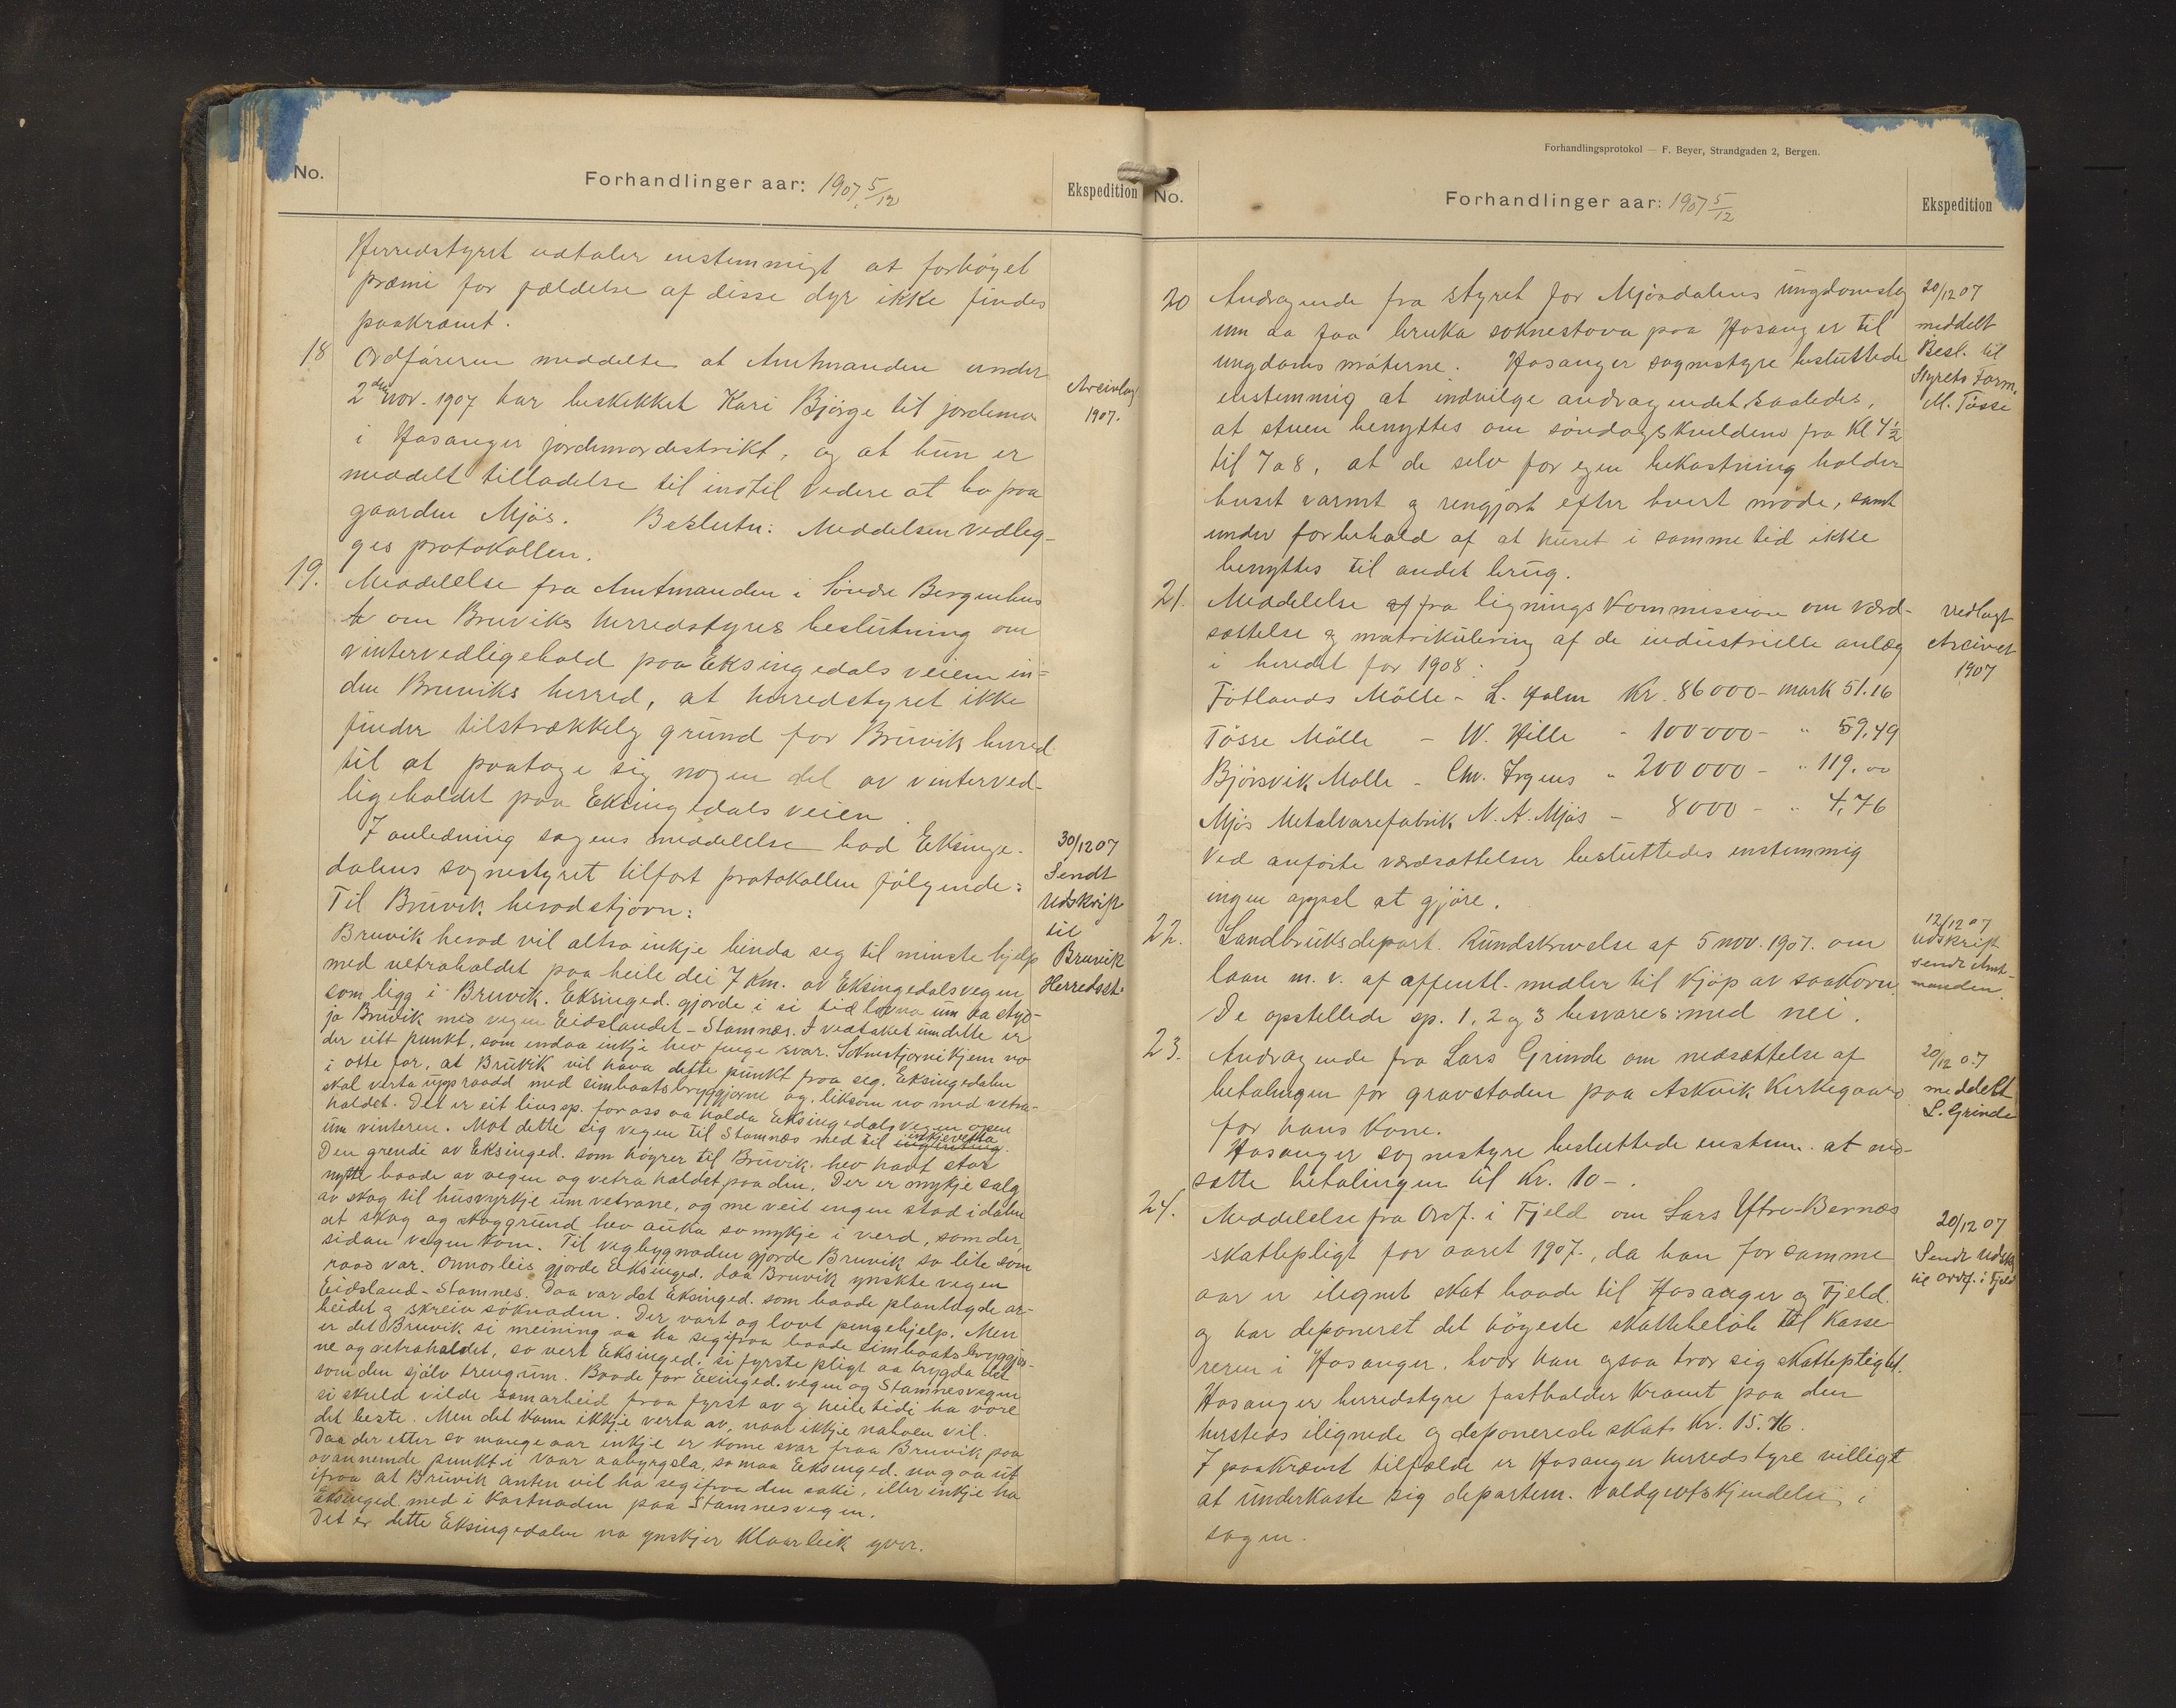 No.
Forhandlinger aar: 1907 5/12
Ekspedition
Herredstyret udtaler enstemmigt at forhøyet
præmi for fældelse af disse dyr ikke findes
paakrævet.
18 Ordføreren meddelte at Amtmanden under
2den nov. 1907 har beskikket Kari Bjørge til jordemor
i Hosanger jordemordistrikt, og at hun er
meddelt tilladelse til indtil videre at bo paa
gaarden Mjøs. Beslutn: Meddelsen vedlæg-
ges protokollen.
Arcivlag
1907.
19. Meddelelse fra Amtmanden i Søndre Bergenhus
om Bruviks herredstyres beslutning om
vintervedligehold paa Eksingedals veien in-
den Bruviks herred, at herredstyret ikke
finder tilstrækkelig grund for Bruvik herred
til at paatage sig nogen del av vinterved-
ligeholdet paa Eksingedals veien
I anledning sagens meddelelse bad Eksinge-
dalens sognestyret tilført protokollen følgende:
Til Bruvik heradstjorn:
Bruvik herad vil altso inkje binda seg til minste hjelp
med vetrahaldet paa heile dei 7 Km. av Eksingedalsvegen
som ligg i Bruvik. Eksinged. gjorde i si tid lovna um aa styd-
ja Bruvik med vegen Eidslandet - Stamnes. I vedtaket um dette er
der eitt punkt, som endaa inkje hev fenge svar. Soknestjorni kjem no
i otte for, at Bruvik vil hava dette punkt fraa seg. Eksingedalen
skal verta uppraadd med dimbaatsbryggjorne og, liksom no med vetra-
haldet. Det er eit livssp. for oss aa halda Eksingedalsvegen open
um vinteren. Mot dette sig vegen til Stamnes med til inkjevetta
Den grendi av Eksinged. som høyrer til Bruvik hev havt stor
nytte baade av vegen og vetrahaldet paa den. Der er mykje salg
av skog til husvyrkje um vetrane, og me veit ingen stad i dalen
at skog og skoggrund hev auka so mykje i verd, som der,
sidan vegen kom. Til vegbygnaden gjorde Bruvik so lite som
raad var. Onnorleis gjorde Eksinged. daa Bruvik ynskte vegen
Eidsland - Stamnes. Daa var det Eksinged. som baade planlagde ar-
beidet og skreiv søknaden. Der vart og lovt pengehjelp. Men
er det Bruvik si meining aa ha seg ifraa baade dimbaatsbryggjor-
ne og vetrahaldet, so vert Eksinged. si fyrste pligt aa trygda det
som den sjølv treng um. Baade for Eksinged.vegen og Stamnesvegen
si skuld vilde samarbeid fraa fyrst av og heile tidi ha vore
det beste. Men det kann ikkje verta av, naar ikkje naboen vil.
Daa der etter so mange aar inkje er kome svar fraa Bruvik paa
ovannemde punkt i vaar aabyrgsla, so maa Eksinged. no gaa ut
ifraa at Bruvik anten vil ha seg ifraa den saki, eller inkje ha
Eksinged. med i kostnaden paa Stamnesvegen.
Det er dette Eksingedalen no ynskjer klaarleik yver.
30/12 07
Sendt
Udskrift
til
Bruvik
Herredsst.
Forhandlingsprotokol — F. Beyer, Strandgaden 2, Bergen.
No.
Forhandlinger aar: 1907 5/12
Ekspedition
20 Andragende fra styret for Mjøsdalens ungdomslag
um aa faa bruka soknestova paa Hosanger til
ungdoms møterne. Hosanger sognestyre besluttede
enstemmig at indvilge andragendet saaledes,
at stuen benyttes om søndagskveldene fra Kl 4½
til 7 a 8, at de selv for egen bekostning holder
huset varmt og rengjort efter hvert møde, samt
under forbehold af at huset i samme tid ikke
benyttes til andet brug.
20/12 07
meddelt
Besl. til
Styrets Form.
M. Tøsse
21. Meddelelse fra lignings kommission om værd-
sættelse og matrikulering af de industrielle anlæg
i herredet for 1908:
Fotlands Mølle - L. Holm Kr. 86000 - mark 51.16
Tøsse Mølle - W. Hille - 100000 - " 59,49
Bjørsvik Mølle - Chr. Irgens " 200000 - " 119.00
Mjøs Metalvarefabrik N. A. Mjøs - 8000 - " 4,76
Ved anførte værdsættelser besluttedes enstemmig
ingen appel at gjøre.
Vedlagt
Arcivet
1907
22. Landbruksdepart. Rundskrivelse af 5 nov. 1907. om
laan m. v. af offentl. midler til kjøp av saakorn.
De opstillede sp. 1, 2 og 3 besvares med nei.
12/12 07
Udskrift
sendt Amt-
manden.
23. Andragende fra Lars Grinde om nedsættelse af
betalingen for gravstaden paa Askvik Kirkegaard
for hans Kone.
Hosanger sognestyre besluttede enstem. at ned-
sætte betalingen til Kr. 10 - .
20/12 07
meddelt
L. Grinde
24. Meddelelse fra Ordf. i Fjeld om Lars Ytre-Bernæs
skattepligt for aaret 1907, da han for samme
aar er ilignet skat baade til Hosanger og Fjeld.
og har deponeret det høyeste skattebeløb til Kasse-
reren i Hosanger, hvor han ogsaa tror sig skattepligtet.
Hosanger herredstyre fastholder kravet paa den
hersteds ilignede og deponerede skat Kr. 15.76.
I paakrævet tilfælde er Hosanger herredstyre villigt
at underkaste sig departem. voldgiftskjendelse i
sagen.
20/12 07
Sendt Udskr.
til ordf. i Fjeld